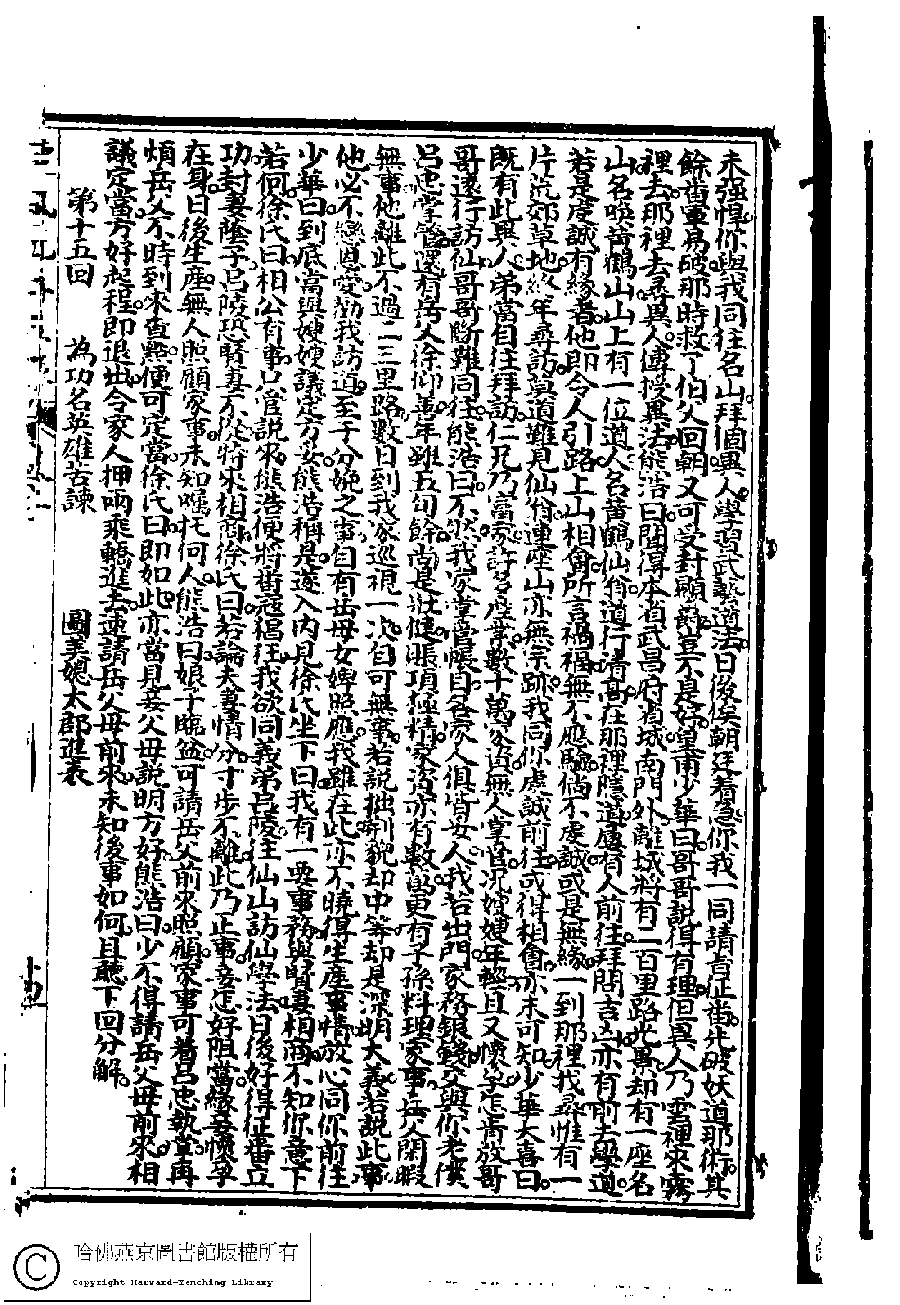 未强悍你與我同往名山拜個異人學習武藝道法日後俟朝廷着急你我一同請旨征番先破妖道邪術其
餘番軍易破那時救了伯父回朝又可受封顯爵豈不是好皇甫少華曰哥哥說得有理但異人乃雲裡來霧
裡去那裡去尋異人傳授異法熊浩曰聞得本省武昌府省城南門外離城將有二百里路光景却有一座名
山名喚黃鶴山山上有一位道人名黃鶴仙翁道行清高在那裡隱道屢有人前往拜問吉凶亦有前去學道
若是虔誠有緣者他即令人引路上山相會所言禍福無不應驗倘不虔誠或是無緣一到那裡找尋惟有一
片荒郊草地終年尋訪莫道難見仙翁連座山亦無踪跡我同你虔誠前往或得相會亦未可知少華大喜曰
既有此異人小弟當自往拜訪仁兄乃富家許多產業數十萬家資無人掌管况嫂嫂年輕且又懷孕怎肯放哥
哥遠行訪仙哥哥斷難同往熊浩曰不然我家掌管賬目各家人俱有女人我若出門家務銀錢交與你老僕
呂忠掌管還有岳父徐仰善年雖五旬餘尚是壯健賬項極精家資亦有數萬更有子孫料理家事岳父閑暇
無事他離此不過二三里路數日到我家巡視一次自可無事若說拙荊貌却中等却是深明大義若說此事
他必不戀恩愛勸我訪道至于分娩之事自有岳母女婢照應我雖在此亦不曉得生產事情放心同你前往
少華曰到底當與嫂嫂議定方妥熊浩稱是遂入內見徐氏坐下曰我有一要事務與賢妻相商不知你意下
若何徐氏曰相公有事只管說來熊浩便將番寇猖狂我欲同義弟呂陵往仙山訪仙學法日後好得征番立
功封妻蔭子呂陵恐賢妻不從特來相商徐氏曰若論夫妻情分寸步不離此乃正事妾怎好阻當緣妾懷孕
在身日後生產無人照顧家事未知囑托何人熊浩曰娘子臨盆可請岳父前來照顧家事可着呂忠執掌再
煩岳父不時到來查點便可定當徐氏曰即如此亦當見妾父母說明方好熊浩曰少不得請岳父母前來相
議定當方好起程即退出令家人押兩乘轎進去速請岳父母前來未知後事如何且聽下回分解
第十五回　為功名英雄苦諫　圖美媳太郡進表
十四
哈佛燕京圖書館版權所有
Copyright Harvard-Yenching Library